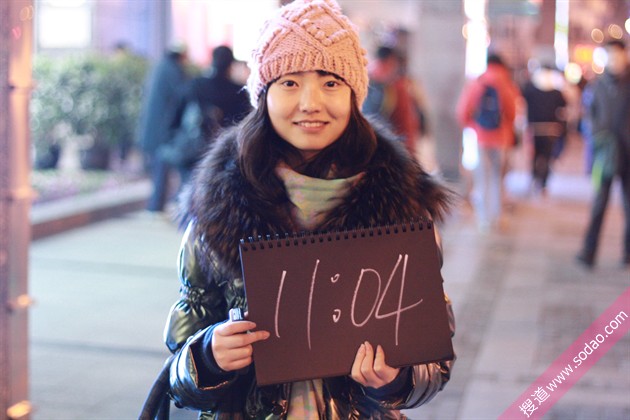 11:04
搜道www.sodao.com